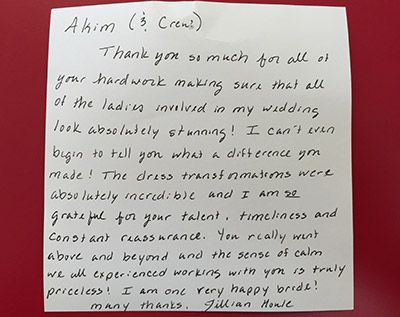 Akim (& Crew)
Thank you so much for all of
your hardwork making sure that all
of the ladies involved in my wedding
look absolutely stunning! I can't even
begin to tell you what a difference you
made! The dress transformations were
absolutely incredible and I am so
grateful for your talent, timeliness and
constant reassurance. You really went
above and beyond and the sense of calm
we all experienced working with you is truly
priceless! I am one very happy bride!
many thanks, Jillian